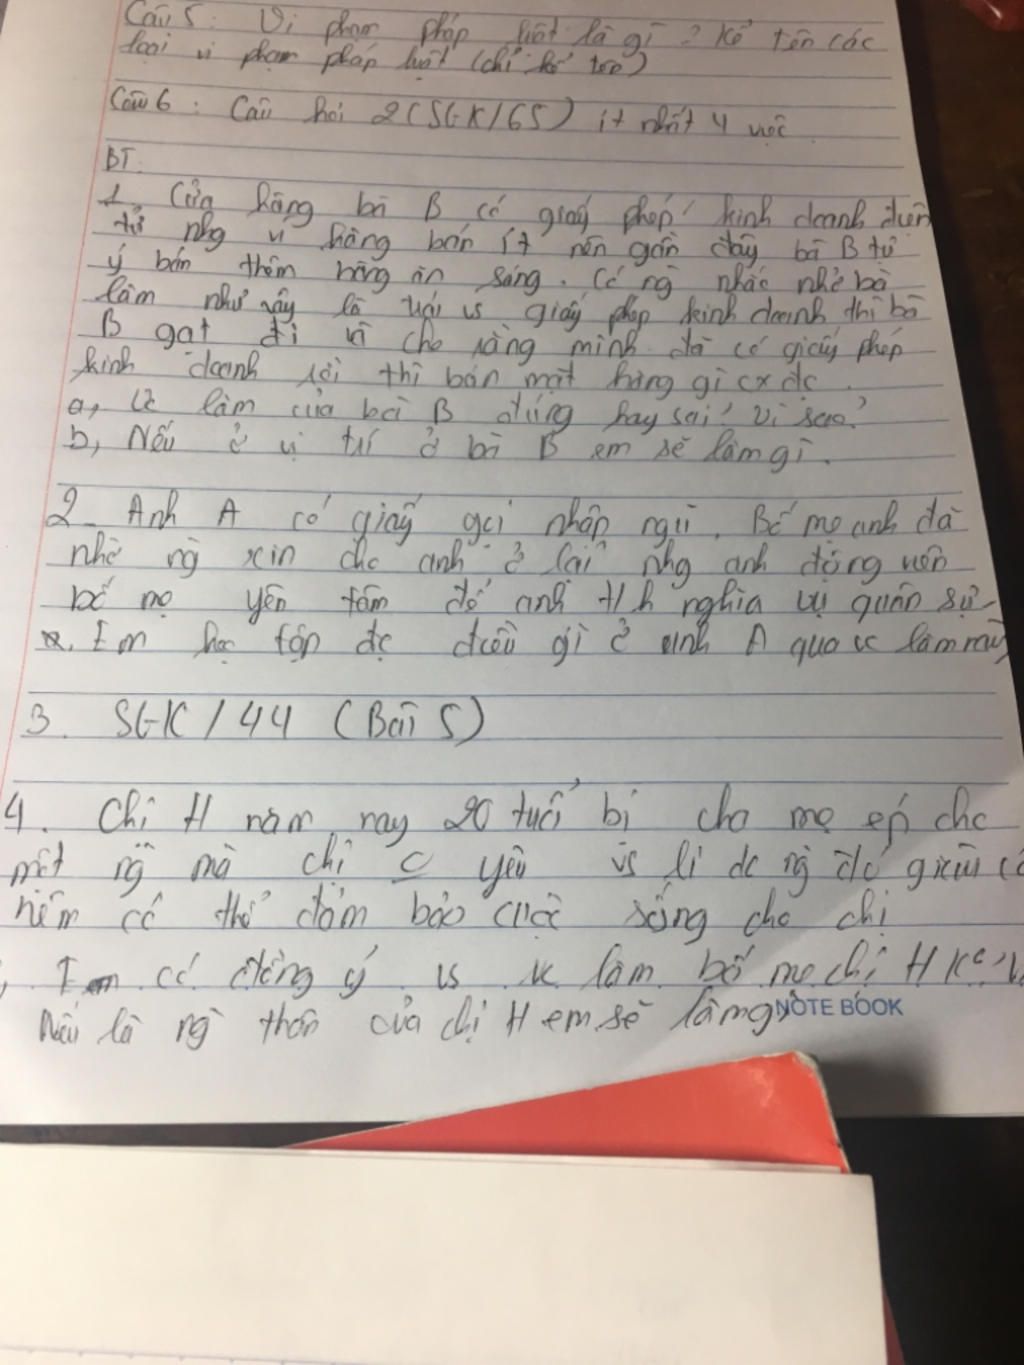 Câu 5: Vi phạm pháp luật là gì? Kể tên các
loại vi phạm pháp luật (chỉ kể tên)
Câu 6: Câu hỏi 2 (SGK/65) ít nhất 4 việc
BT.
1. Cửa hàng bà B có giấy phép kinh doanh điện
tử nhg vì hàng bán ít nên gần đây bà B tự
ý bán thêm hàng ăn sáng. Có ng nhắc nhở bà
làm như vậy là trái vs giấy phép kinh doanh thì bà
B gạt đi vì cho rằng mình đã có giấy phép
kinh doanh rồi thì bán mặt hàng gì cx đc.
a, Vc làm của bà B đúng hay sai? Vì sao?
b, Nếu ở vị trí ở bà B em sẽ làm gì.
2. Anh A có giấy gọi nhập ngũ. Bố mẹ anh đã
nhờ ng xin cho anh ở lại nhg anh động viên
bố mẹ yên tâm để anh th nghĩa vụ quân sự.
Em học tập đc điều gì ở anh A qua vc làm này
3. SGK/44 (Bài 5)
4. Chị H năm nay 20 tuổi bị cha mẹ ép cho
một ng mà chị yêu vs lí do ng đó giàu có
có thể đảm bảo cuộc sống cho chị
Em có đồng ý vs vc làm bố mẹ chị H ko?
Nếu là ng thân của chị H em sẽ làm gì
NOTE BOOK